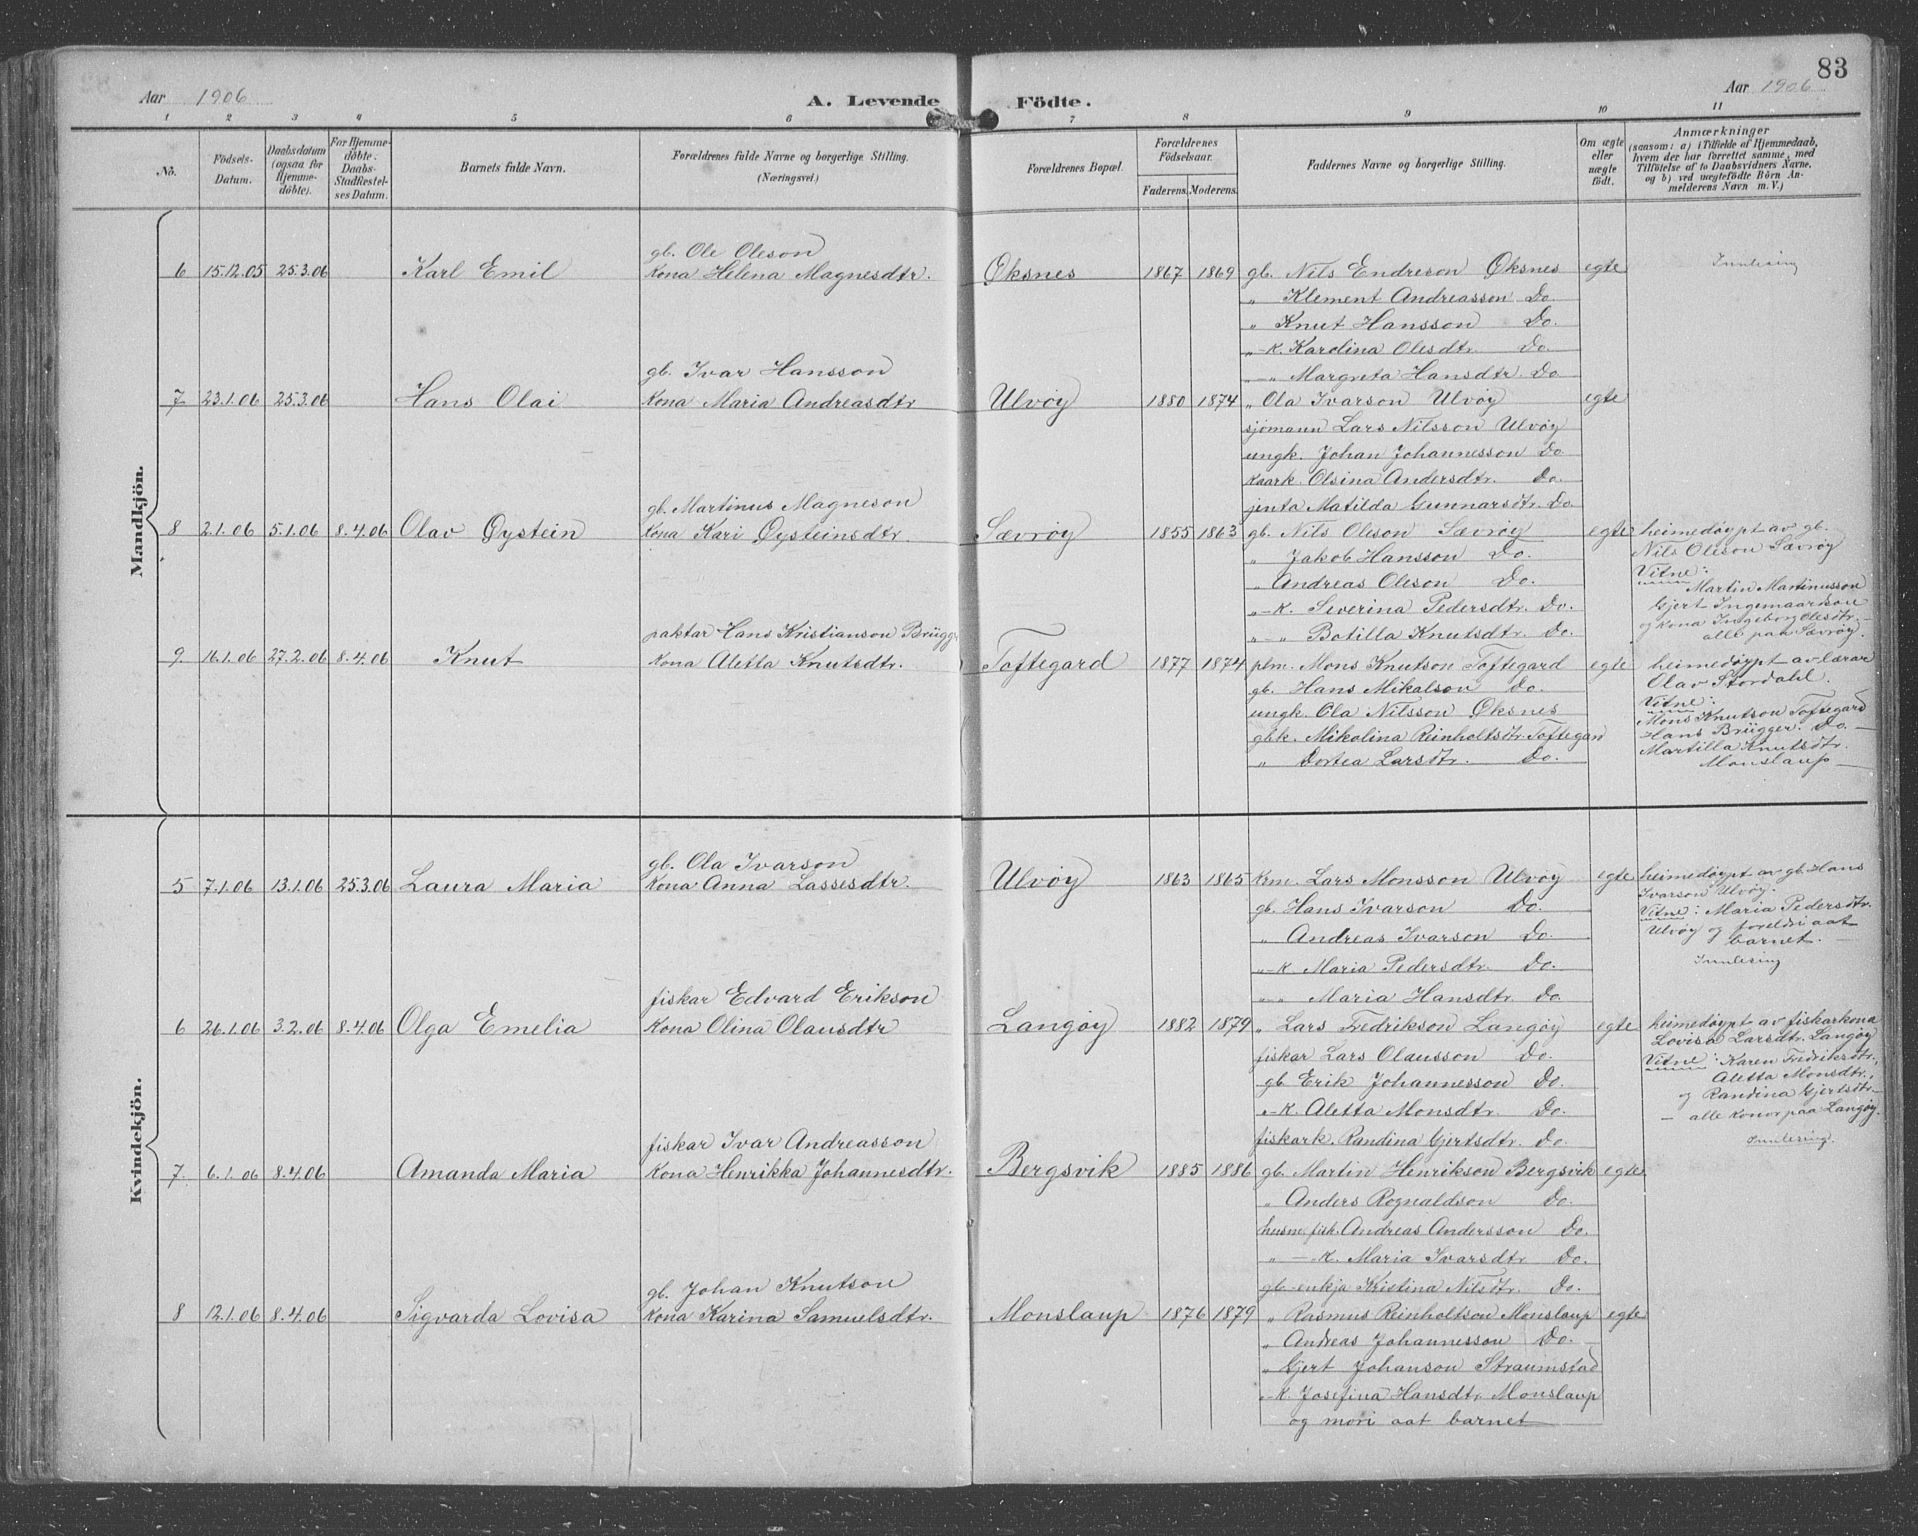 83
Aar 1906
A. Levende Födte.
Aar 1906
1 2 3 4 5 6 7 8 9 10 11
No.
Födsels-
Datum.
Daabsdatum
(ogsaa for
Hjemme-
döbte).
For Hjemme-
döbte:
Daabs-
Stadfæstel-
ses Datum.
Barnets fulde Navn.
Forældrenes fulde Navne og borgerlige Stilling.
(Næringsvei.)
Forældrenes Bopæl.
Forældrenes
Födselsaar.
Faderens. Moderens.
Faddernes Navne og borgerlige Stilling.
Om ægte
eller
uægte
födt.
Anmærkninger
(saasom: a) i Tilfælde af Hjemmedaab,
hvem der har forrettet samme, med
Tilföielse af to Daabsvidners Navne,
og b) ved uægtefödte Börn An-
melderens Navn m. V.)
Mandkjön.
gb. Ole Oleson
6 15.12.05 25.3.06 Karl Emil Kona Helena Magnesdtr. Øksnes 1867 1869 gb. Nils Endreson Øksnes egte Innlesing
" Klement Andreasson Do.
" Knut Hansson Do.
"-K. Karolina Olesdtr. Do.
"-" Margreta Hansdtr. Do
gb. Ivar Hansson
7 23.1.06 25.3.06 Hans Olai Kona Maria Andreasdtr Ulvøy 1880 1874 " Ola Ivarson Ulvøy egte
sjømann Lars Nilsson Ulvøy
ungk. Johan Johannesson Do
Kaark. Olsina Andersdtr. Do.
jenta Matilda Gunnarsdtr. Do.
gb. Martinus Magneson
8 2.1.06 5.1.06 8.4.06 Olav Øystein Kona Kari Øysteinsdtr. Sævrøy 1855 1863 gb. Nils Oleson Sævrøy egte heimedøypt av gb.
Nils Oleson Sævrøy
" Jakob Hansson Do.
Vitne:
" Andreas Oleson Do.
Martin Martinusson
"-K. Severina Pedersdtr. Do.
Gjert Ingemaarson
og kona Ingeborg Olesdtr. -
"-" Botilla Knutsdtr. Do.
alle paa Sævrøy.
paktar Hans Kristianson Brügg.
9 16.1.06 27.2.06 8.4.06 Knut Kona Aletta Knutsdtr. Toftegard 1877 1874 ptm. Mons Knutson Toftegard egte heimedøypt av lærar
gb. Hans Mikalson Do.
Olav Stordahl.
Vitne:
ungk. Ola Nilsson Øksnes
Mons Knutson Toftegard
gbk. Mikolina Reinholtsdtr. Toftegard
Hans Brügger. Do. -
Martilla Knutsdtr.
" Dortea Larsdtr. Do.
Monslaup -
Kvindekjön.
gb. Ola Ivarson
5 7.1.06 13.1.06 25.3.06 Laura Maria Kona Anna Lassesdtr. Ulvøy 1863 1865 krm. Lars Monsson Ulvøy egte heimedøypt av gb. Hans
Ivarson Ulvøy.
gb. Hans Ivarson Do.
Vitne: Maria Pedersdtr.
" Andreas Ivarson Do.
Ulvøy og foreldri aat
barnet. -
"-K Maria Pedersdtr. Do.
Innlesing
"-" Maria Hansdtr. Do
fiskar Edvard Erikson
6 26.1.06 3.2.06 8.4.06 Olga Emelia Kona Olina Olausdtr Langøy 1882 1879 " Lars Fredrikson Langøy egte heimedøypt av fiskarkona
Lovisa Larsdtr. Langøy
fiskar Lars Olausson Do.
Vitne: Karen Fredriksdtr.,
gb. Erik Johannesson Do.
Aletta Monsdtr.,
og Randina Gjertsdtr. -
"-K. Aletta Monsdtr. Do.
- alle konor paa Langøy.
fiskark. Randina Gjertsdtr. Do.
Innlesing.
fiskar Ivar Andreasson
7 6.1.06 8.4.06 Amanda Maria Kona Henrikka Johannesdtr. Bergsvik 1885 1886 gb. Martin Henrikson Bergsvik egte
" Anders Rognaldson Do.
husm. fisk. Andreas Andersson Do.
" -K. Maria Ivarsdtr Do.
gb-enkja Kristina Nilsdtr. Do.
gb. Johan Knutson
8 12.1.06 8.4.06 Sigvarda Lovisa Kona Karina Samuelsdtr. Monslaup 1876 1879 " Rasmus Reinholtson Monslaup egte
" Andreas Johannesson Do. -
" Gjert Johanson Straumstad
"-K. Josefina Hansdtr. Monslaup
og mori aat barnet